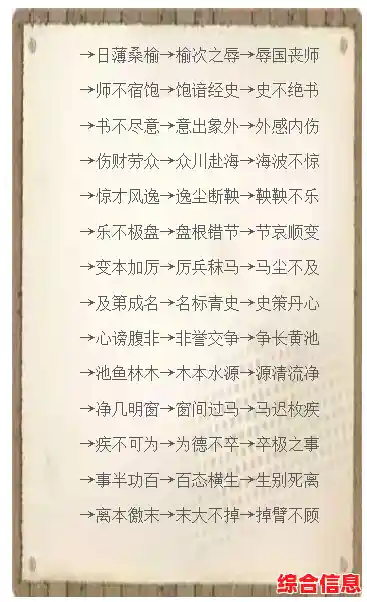 →日薄桑榆→榆次之辱→辱国丧师
→师不宿饱→饱谙经史→史不绝书
→书不尽意→意出象外→外感内伤
→伤财劳众→众川赴海→海波不惊
→惊才风逸→逸尘断鞅→鞅鞅不乐
→乐不极盘→盘根错节→节哀顺变
→变本加厉→厉兵秣马→马尘不及
→及第成名→名标青史→史策丹心
→心谤腹非→非誉交争→争长黄池
→池鱼林木→木本水源→源清流净
→净几明窗→窗间过马→马迟枚疾
→疾不可为→为德不卒→卒极之事
→事半功百→百态横生→生别死离
→离本徼末→末大不掉→掉臂不顾
综合信息